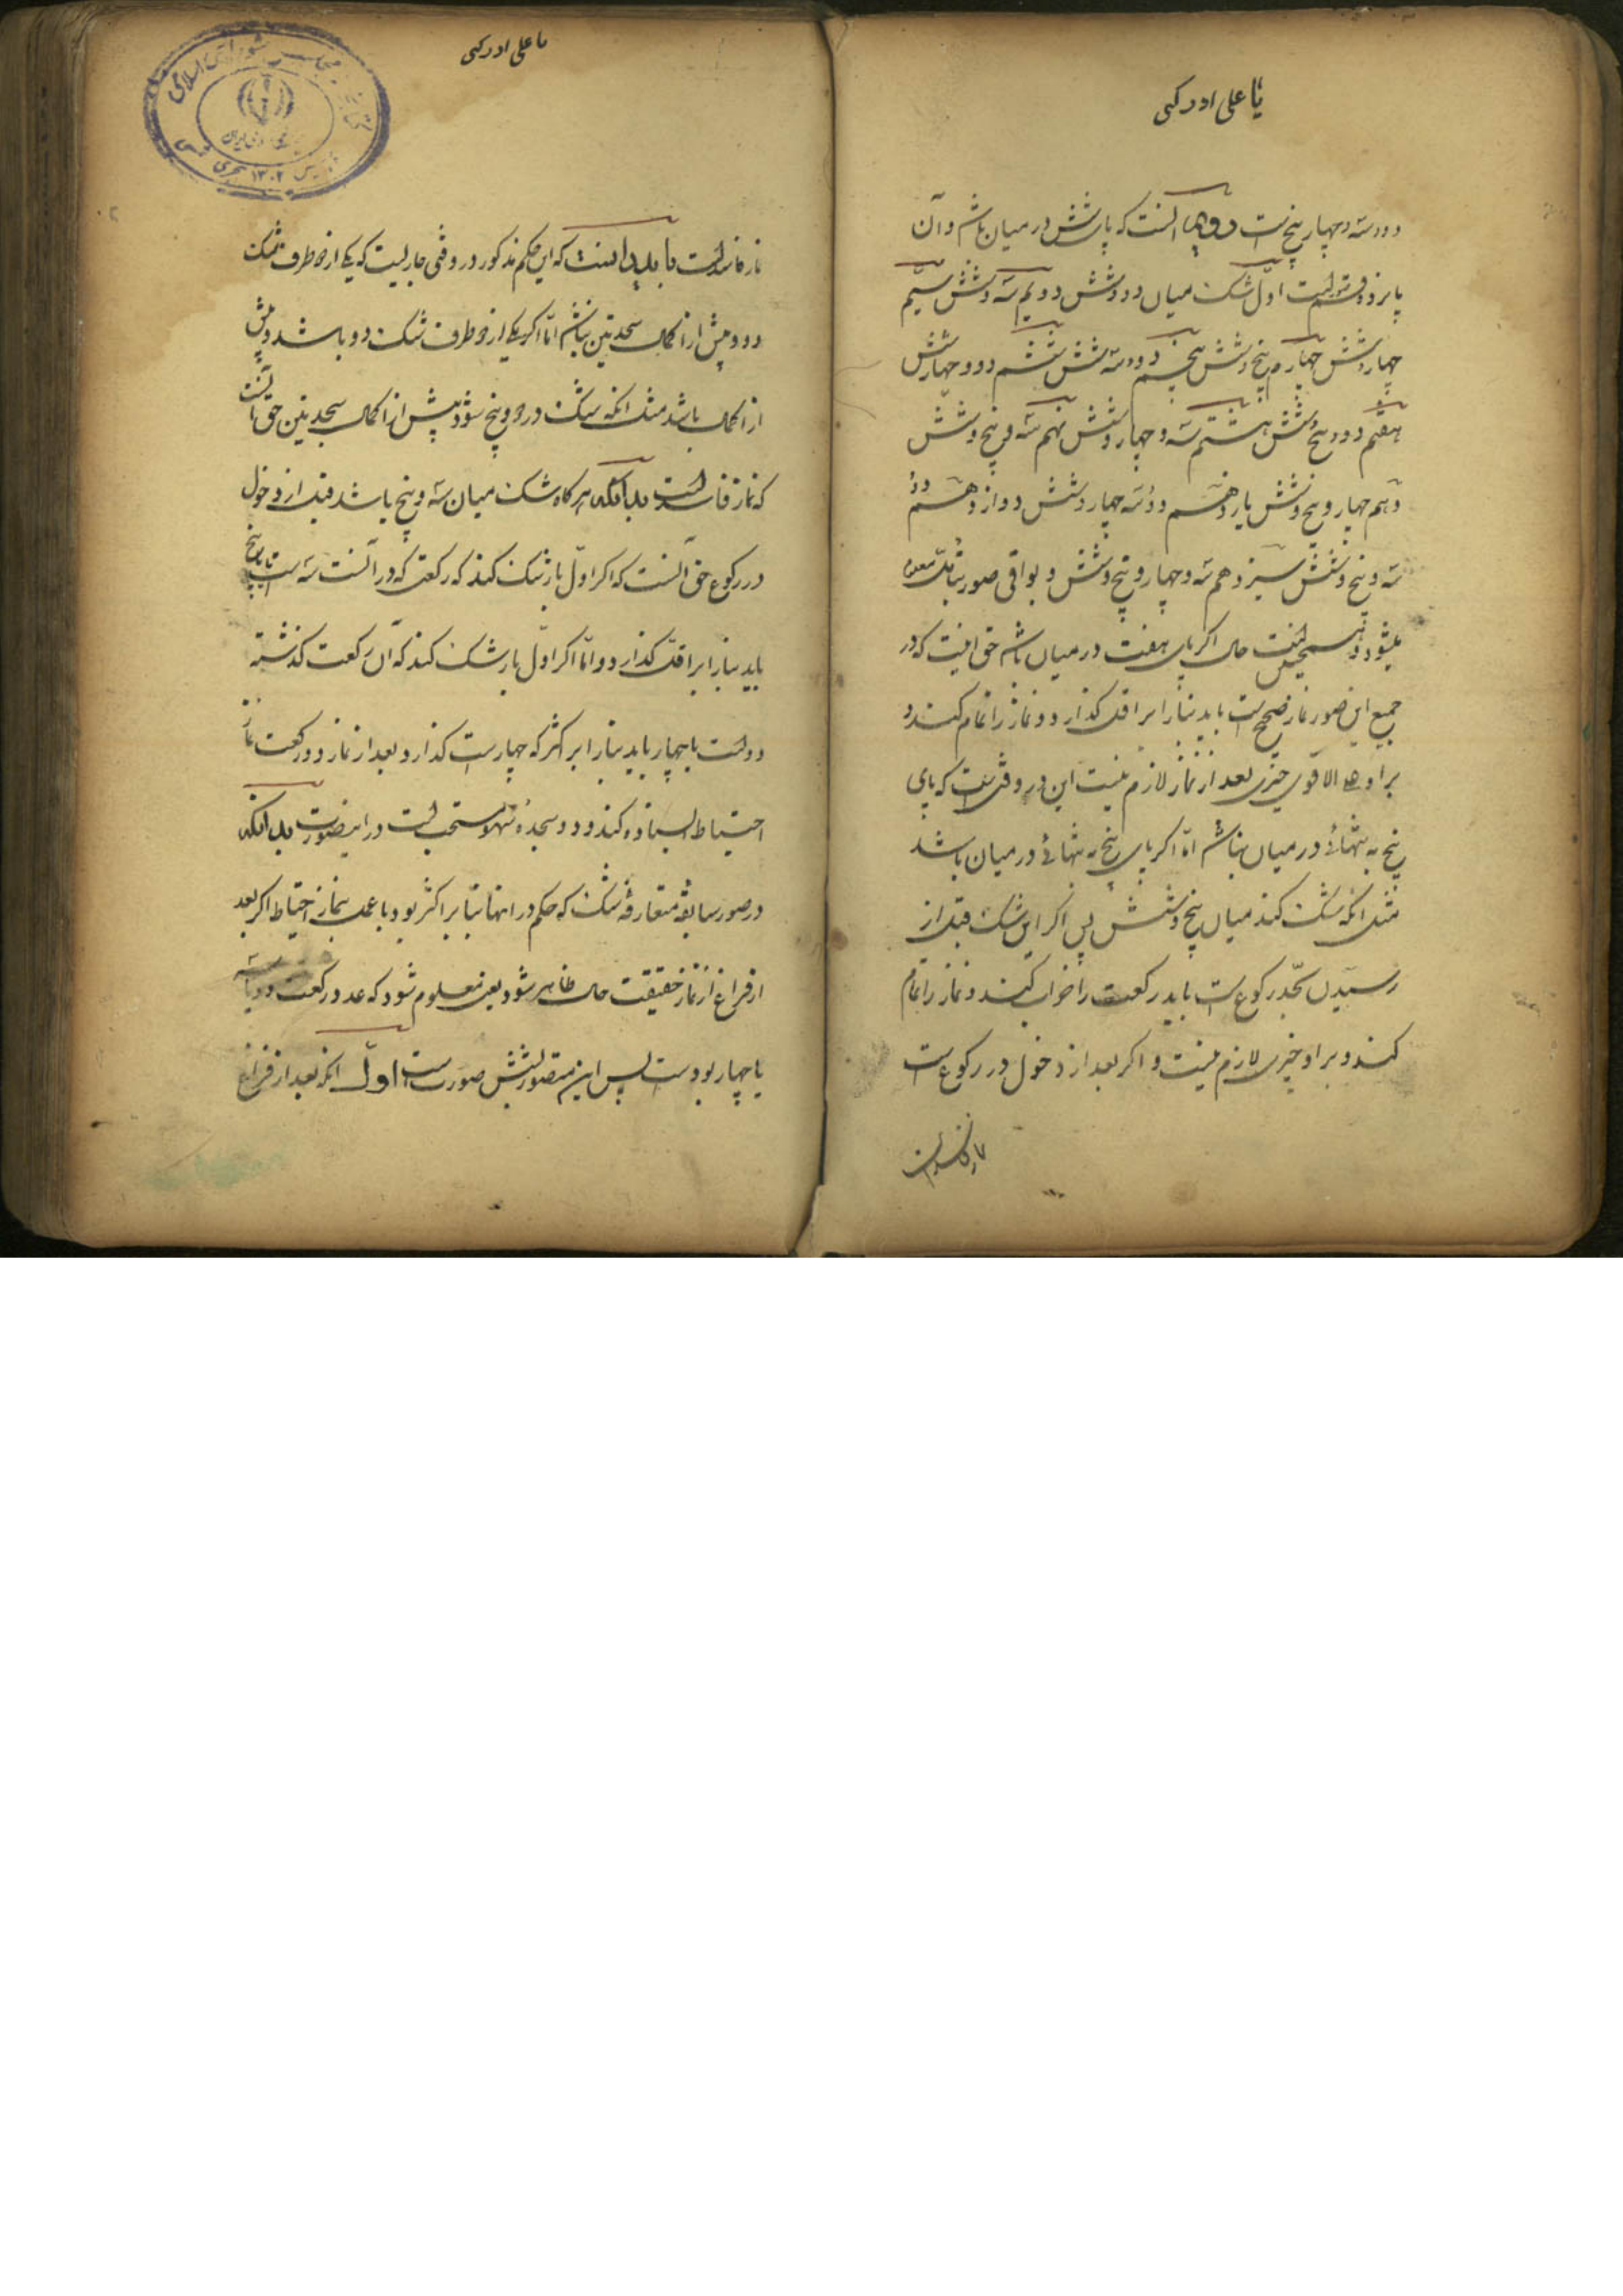 یا علی ادرکنی
و دو و سه و چهار و پنج است دویم آنست که پای شش در میان باشد و آن
پانزده قسم است اول شک میان دو و شش دویم سه و شش سیم
چهار و شش چهارم پنج و شش پنجم دو و سه و شش ششم دو و چهار و شش
هفتم دو و پنج و شش هشتم سه و چهار و شش نهم سه و پنج و شش
دهم چهار و پنج و شش یازدهم دو و سه و چهار و شش دوازدهم
سه و پنج و شش سیزدهم سه و چهار و پنج و شش و بواقی صور
حال اگر پای هفت در میان باشد حق اینست که در
جمیع این صور نماز صحیح است باید بنا را بر اقل گذارد و نماز را تمام کند و
بر او علی الاقوی چیزی بعد از نماز لازم نیست این در وقتی است که پای
پنج به تنهائی در میان نباشد اما اگر پای پنج به تنهائی در میان باشد
مثل آنکه شک کند میان پنج و شش پس اگر این شک قبل از
رسیدن بحد رکوع است باید رکعت را خراب کند و نماز را تمام
کند و بر او چیزی لازم نیست و اگر بعد از دخول در رکوع است
نماز فاسد است
یا علی ادرکنی
نماز فاسد است باید دانست که این حکم مذکور در وقتی جاریست که یکی از دو طرف شک
دو و پیش از اکمال سجدتین نباشد اما اگر یکی از دو طرف شک دو باشد و پیش
از اکمال باشد مثل آنکه شک در دو و پنج شود پیش از اکمال سجدتین حق آنست
که نماز فاسد است بدانکه هر گاه شک میان سه و پنج باشد قبل از دخول
در رکوع حق آنست که اگر اول بار شک کند که رکعتی که در آنست سه است یا پنج
باید بنا را بر اقل گذارد و اما اگر اول بار شک کند که آن رکعت گذشته
دو است یا چهار باید بنا را بر اکثر که چهار است گذارد و بعد از نماز دو رکعت نماز
احتیاط ایستاده کند و دو سجده سهو مستحب است در اینصورت بدانکه
در صور سابقه متعارفه شک که حکم در آنها بنا بر اکثر بود با عمل بنماز احتیاط اگر بعد
از فراغ از نماز حقیقت حال ظاهر شود یعنی معلوم شود که عدد رکعت دو یا سه
یا چهار بوده است پس این متصور بشش صورت است اول آنکه بعد از فراغ